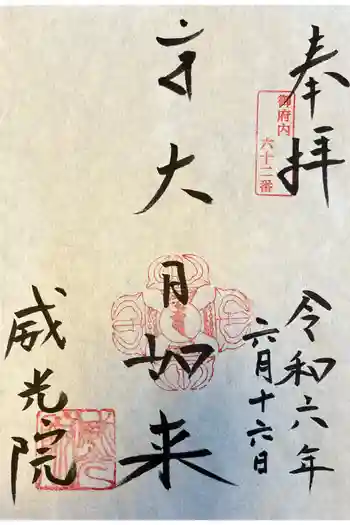 奉拝
御府内
六十二番
令和六年
六月十六日
大日如来
威光院